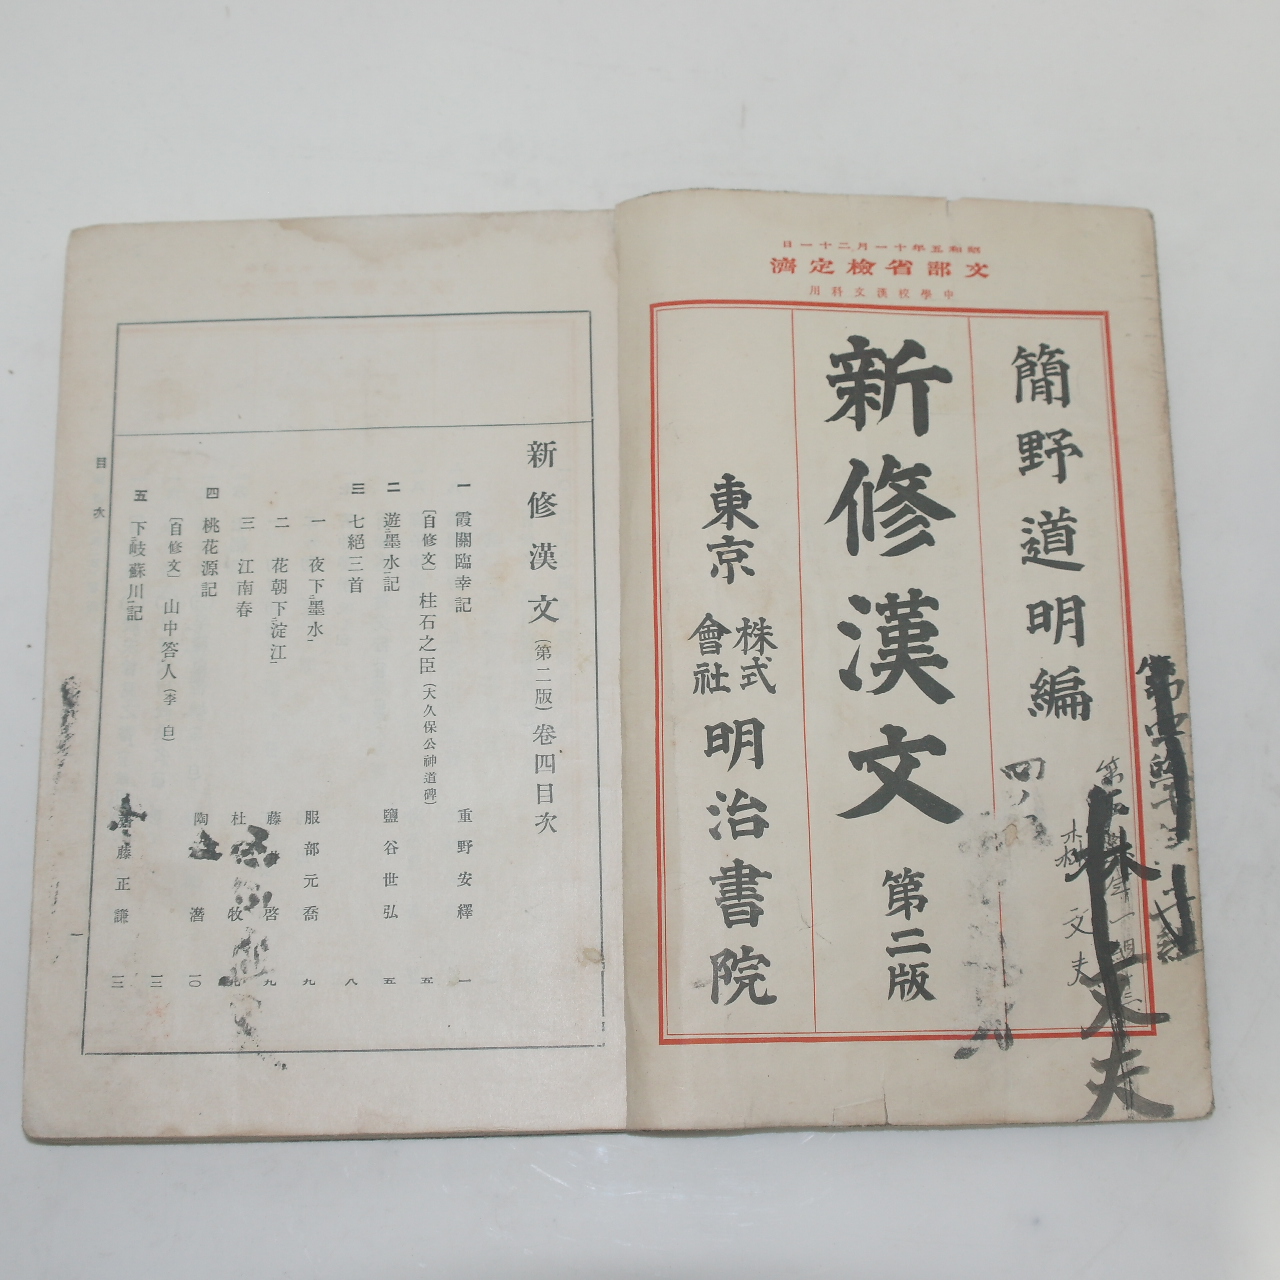 昭和五年十一月二十一日
文部省檢定濟
中學校漢文科用
簡野道明編
新修漢文 第二版
東京 株式會社 明治書院
文夫
新修漢文(第二版)卷四目次
一 霞關臨幸記 重野安繹 一
〔自修文〕 柱石之臣(大久保公神道碑) 五
二 遊墨水記 鹽谷世弘 五
三 七絕三首 八
一 夜下墨水 服部元喬 九
二 花朝下淀江 藤 啓 九
三 江南春 杜 牧
四 桃花源記 陶 潛 一〇
〔自修文〕 山中答人(李白) 一三
五 下岐蘇川記 藤正謙 一三
目次 一